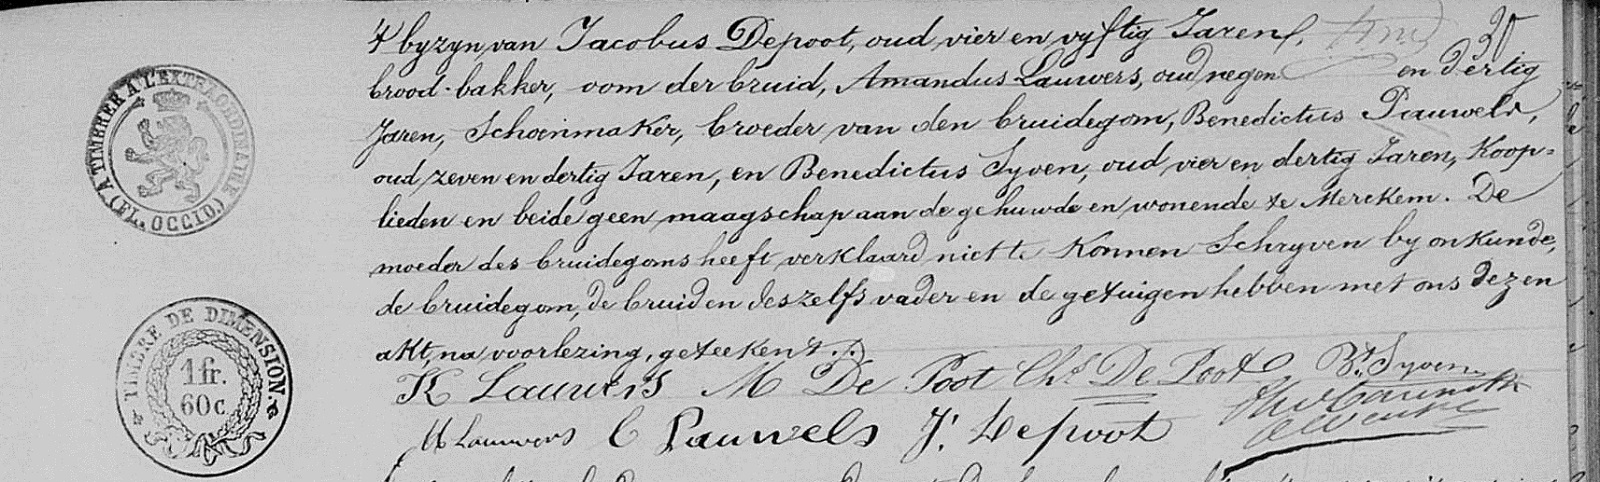 30
& byzyn van Jacobus Depoot, oud vier en vyftig Jaren,
brood-bakker, oom der bruid, Amandus Lauwers, oud negen en dertig
Jaren, Schoenmaker, broeder van den bruidegom, Benedictus Pauwels,
oud zeven en dertig Jaren, en Benedictus Syoen, oud vier en dertig Jaren, Koop=
lieden en beide geen maagschap aan de gehuwde en wonende te Merckem. De
moeder des bruidegoms heeft verklaard niet te Konnen Schryven by onkunde,
de bruidegom, de bruid en deszelfs vader en de getuigen hebben met ons dezen
akt, na voorlezing, geteekent.
K Lauwers M De Poot Chs De Poot Bt Syoen
A Lauwers B Pauwels J. Depoot
A TIMBRER A L'EXTRAORDINAIRE
(FL. OCCID.)
TIMBRE DE DIMENSION.
1 fr.
60 c